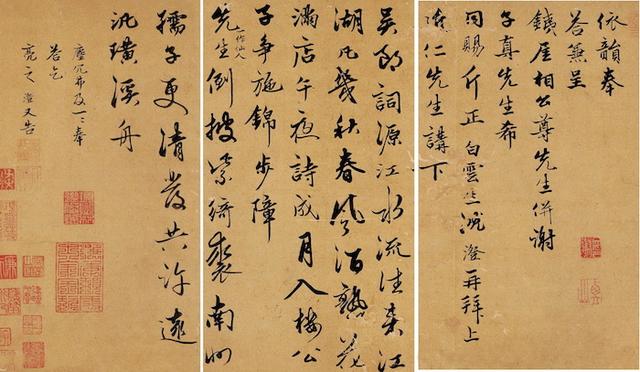 依韻奉
答兼呈
鐵厓相公尊先生併謝
子真先生希
同賜斤正 白雲 澄再拜上
仁先生講下
吳郎詞源江水流往來江
湖凡幾秋春風酒熟花
滿店午夜詩成月入樓公
子爭施錦步障
一作仙人
先生倒披紫綺裘南州
孺子更清發共許遠
泛璜溪舟
塵冗弗及一一奉
答乞
亮之 澄又告